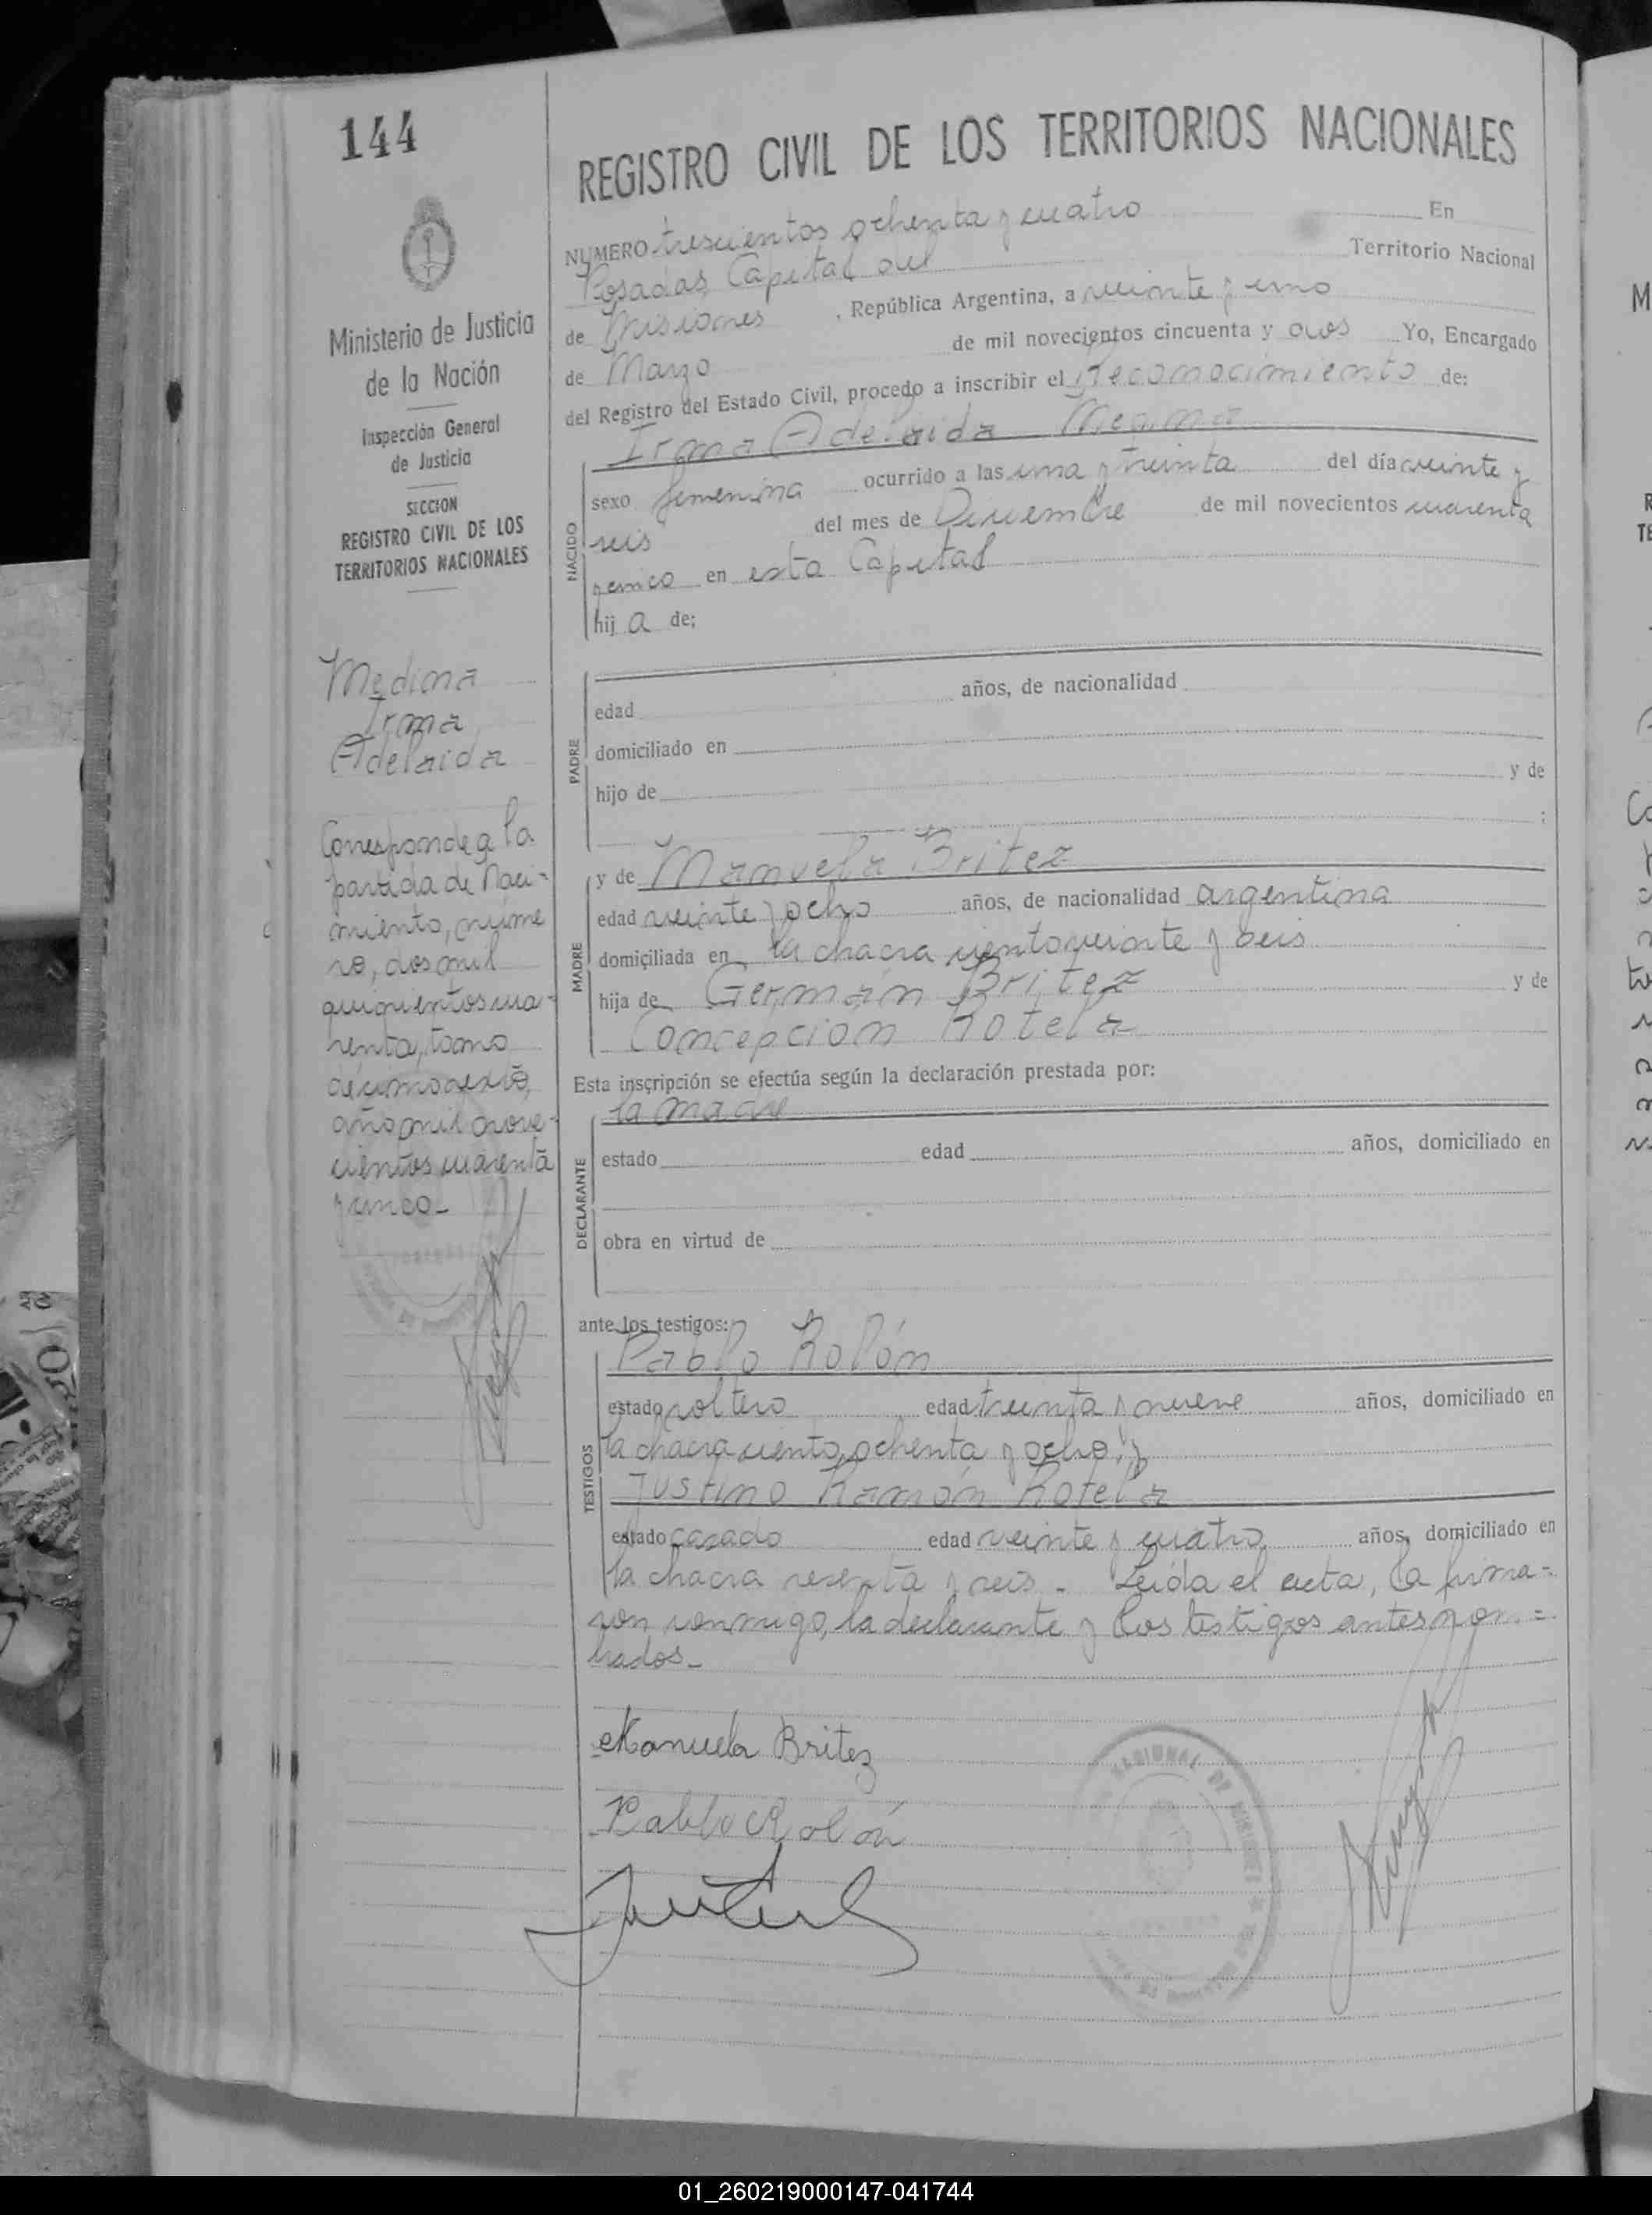 144
REGISTRO CIVIL DE LOS TERRITORIOS NACIONALES
Ministerio de Justicia
de la Nación
Inspección General
de Justicia
SECCION
REGISTRO CIVIL DE LOS
TERRITORIOS NACIONALES
Medina
Irma
Adelaida
Corresponde a la
partida de Naci-
miento, núme
ro, dos mil
quinientos cua-
renta, tomo
décimo sexto,
año mil nove-
cientos cuarenta
y cinco.-
NUMERO trescientos ochenta y cuatro En
Posadas, Capital del Territorio Nacional
de Misiones, República Argentina, a veinte y uno
de Marzo de mil novecientos cincuenta y dos Yo, Encargado
del Registro del Estado Civil, procedo a inscribir el Reconocimiento de:
Irma Adelaida Medina
NACIDO
sexo femenina ocurrido a las una y treinta del día veinte y
seis del mes de Diciembre de mil novecientos cuarenta
y cinco en esta Capital
hij a de;
PADRE
edad años, de nacionalidad
domiciliado en
hijo de y de
;
MADRE
y de Manuela Britez
edad veinte y ocho años, de nacionalidad argentina
domiciliada en la chacra ciento veinte y seis
hija de Germán Britez y de
Concepcion Rotela
Esta inscripción se efectúa según la declaración prestada por:
la madre
DECLARANTE
estado edad años, domiciliado en
obra en virtud de
ante los testigos:
Pablo Rolón
TESTIGOS
estado soltero edad treinta y nueve años, domiciliado en
la chacra ciento ochenta y ocho, y
Justino Ramón Rotela
estado casado edad veinte y cuatro años, domiciliado en
la chacra sesenta y seis.- Leida el acta, la firma=
ron conmigo, la declarante y los testigos antes nom=
brados.-
Manuela Britez
Pablo Rolón
M
Co
01_260219000147-041744